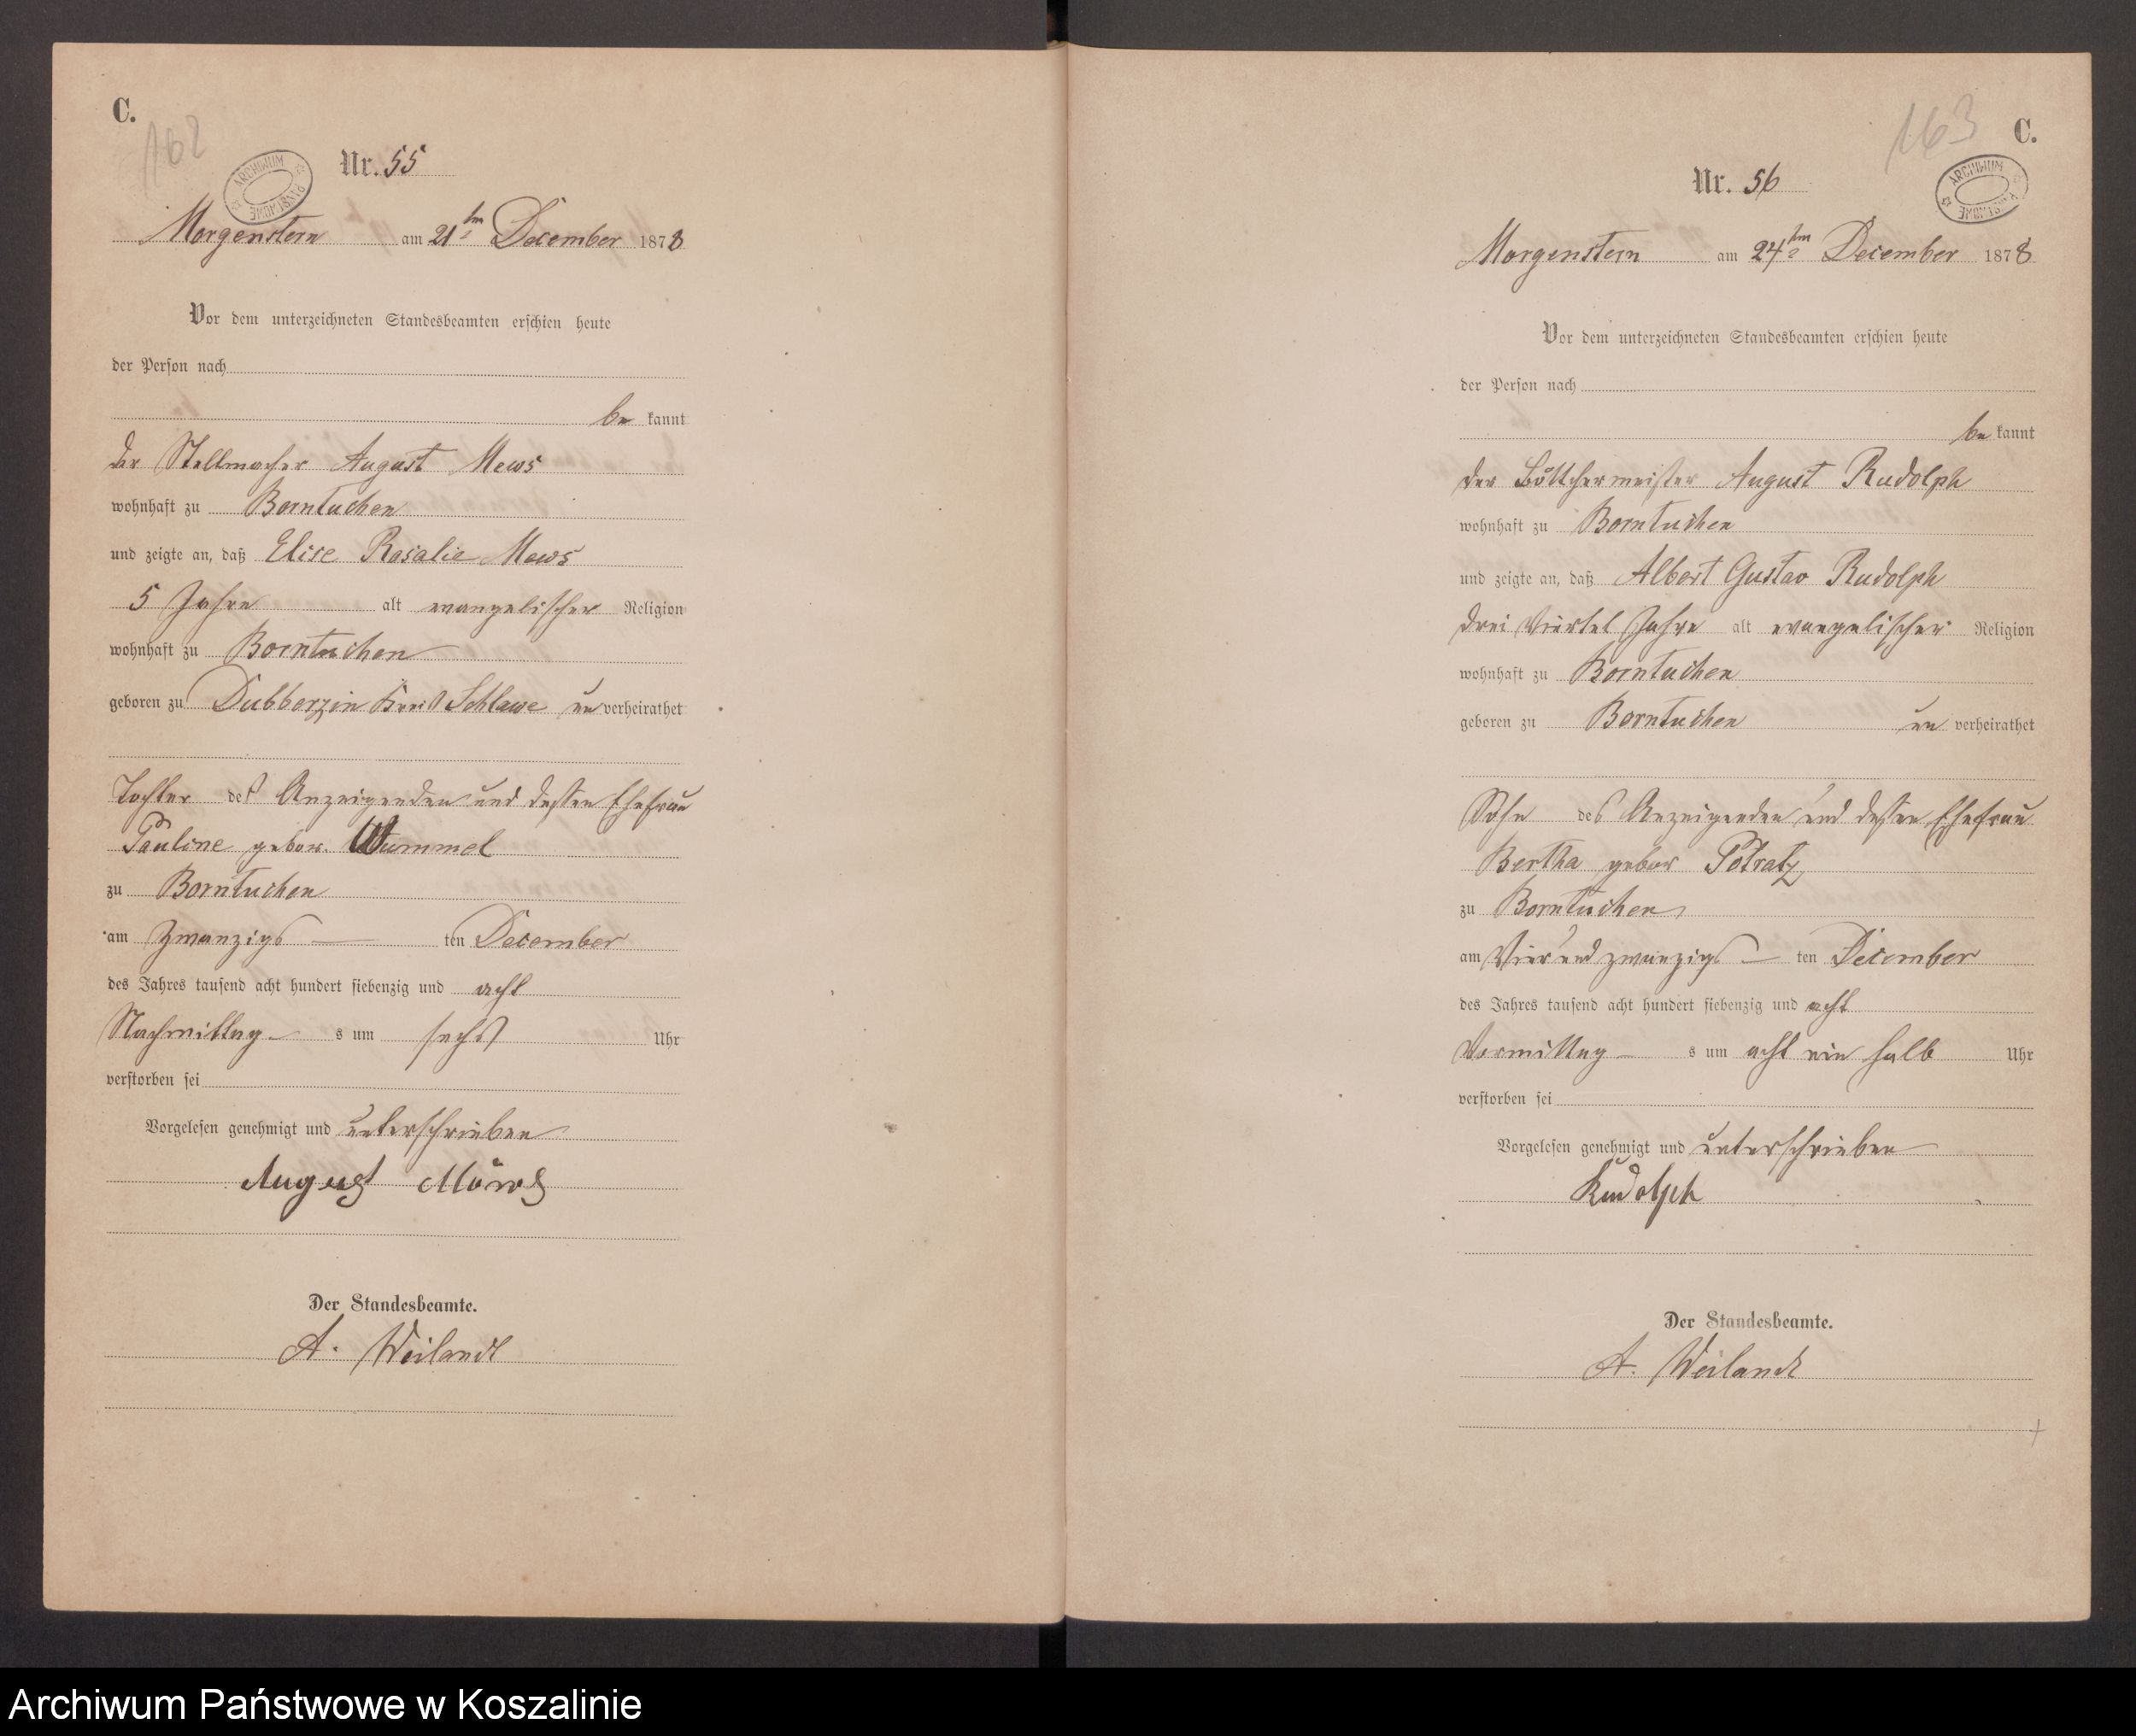 C.
162
ARCHIWUM PAŃSTWOWE
Nr. 55
Morgenstern am 21ten December 1878
Vor dem unterzeichneten Standesbeamten erschien heute
der Person nach
be kannt
der Stellmacher August Mews
wohnhaft zu Borntuchen
und zeigte an, daß Elise Rosalie Mews
5 Jahre alt evangelischer Religion
wohnhaft zu Borntuchen
geboren zu Dubberzin Kreis Schlawe un verheirathet
Tochter des Anzeigenden und dessen Ehefrau
Pauline gebor. Wummel
zu Borntuchen
am zwanzigs ten December
des Jahres tausend acht hundert siebenzig und acht
Nachmittag s um sechs Uhr
verstorben sei
Vorgelesen genehmigt und unterschrieben
August Möws
Der Standesbeamte.
A. Weilandt
163
C.
ARCHIWUM PAŃSTWOWE
Nr. 56
Morgenstern am 24ten December 1878
Vor dem unterzeichneten Standesbeamten erschien heute
der Person nach
be kannt
der Böttchermeister August Rudolph
wohnhaft zu Borntuchen
und zeigte an, daß Albert Gustav Rudolph
drei Viertel Jahre alt evangelischer Religion
wohnhaft zu Borntuchen
geboren zu Borntuchen un verheirathet
Sohn des Anzeigenden und dessen Ehefrau
Bertha gebor Potratz
zu Borntuchen
am Vier und zwanzigs ten December
des Jahres tausend acht hundert siebenzig und acht
Vormittag s um acht ein halb Uhr
verstorben sei
Vorgelesen genehmigt und unterschrieben
Rudolph
Der Standesbeamte.
A. Weilandt
Archiwum Państwowe w Koszalinie